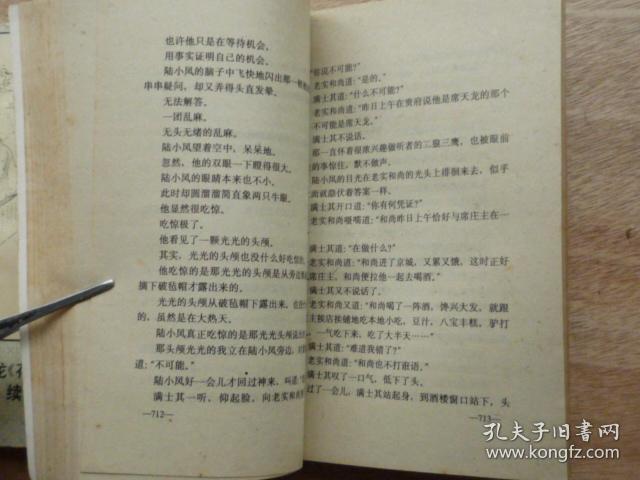 也许他只是在等待机会。
用事实证明自己的机会。
陆小凤的脑子中飞快地闪出那一
串串疑问，却又弄得头直发晕。
无法解答。
一团乱麻。
无头无绪的乱麻。
陆小凤望着空中，呆呆地。
忽然，他的双眼一下瞪得很大。
陆小凤的眼睛本来也不小。
此时却圆溜溜简直象两只牛眼。
他显然很吃惊。
吃惊极了。
他看见了一颗光光的头颅。
其实，光光的头颅也没什么好吃惊的。
他吃惊的是那光光的头颅是从旁边
摘下破毡帽才露出来的。
光光的头颅从破毡帽下露出来，也
的，虽然是在大热天。
陆小凤真正吃惊的是那光光头颅
那头颅光光的我立在陆小凤旁边，
道：“不可能。”
陆小凤好一会儿才回过神来，叫道：
满士其一听，仰起脸，向老实和
—712—
说不可能？”
老实和尚道：“是的。”
满士其道：“什么不可能？”
老实和尚道：“昨日上午在贵府说他是席天龙的那个
不可能是席天龙。”
满士其不说话。
那一直怀着很浓兴趣做听者的二狼三鹰，也被眼前
的事惊住，默不做声。
陆小凤的目光在老实和尚的光头上徘徊来去，似乎
尚就悬伏着答案一样。
满士其开口道：“你有何凭证？”
老实和尚嗫嚅道：“和尚昨日上午恰好与席庄主在一
满士其道：“在做什么？”
老实和尚道：“和尚进了京城，又累又饿，这时正好
席庄主，和尚便拉他一起去喝酒。”
满士其又不说话了。
老实和尚又道：“和尚喝了一阵酒，馋兴大发，就跟
主挨店挨铺地吃本地小吃，豆汁，八宝丰糕，驴打
一气吃下来，吃了大半天……”
满士其道：“难道我错了？”
老实和尚道：“和尚也不打诳语。”
满士其叹了一口气，低下了头。
过了一会儿，满士其站起身，到酒楼窗口站下，头
—713—
续
孔夫子旧书网
kongfz.com